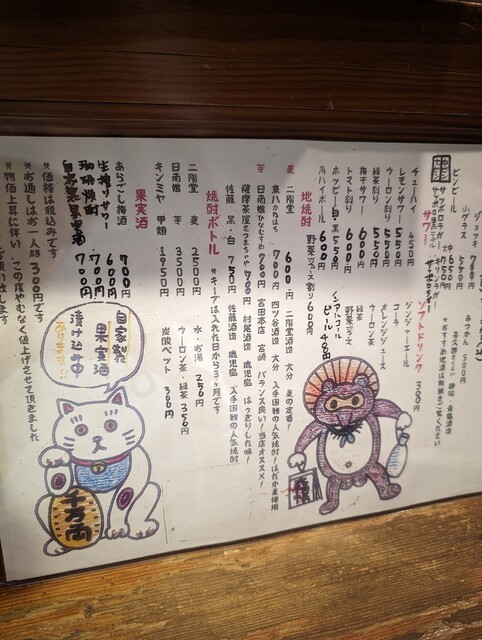 ジョッキ
小グラス
ビンビール
サッポロラガー
サワー
チューハイ 450
レモンサワー 550
ウーロン割り 550
緑茶割り 550
梅干サワー 600
トマト割り
ホッピー 白・黒 550
角ハイボール 600円
あつかん 500円
ソフトドリンク 300円
ジンジャーエール
コーラ
オレンジジュース
ウーロン茶
緑茶
野菜ジュース
ノンアルコールビール 480円
野菜ジュース割り 600円
地焼酎
麦 二階堂 600円 二階堂酒造 大分 麦の定番!
兼八 かねはち 700円 四ツ谷酒造 大分 入手国難の人気焼酎!はだか麦使用
芋 日南娘 ひなむすめ 700円 宮田本店 宮崎 バランス良い!当店オススメ!
薩摩茶屋 さつまちゃや 700円 村尾酒造 鹿児島 はっきりした味!
佐藤 黒・白 750円 佐藤酒造 鹿児島 入手国難の人気焼酎
焼酎ボトル *キープは入れた日から3ヶ月です
二階堂 麦 2500円
日南娘 芋 3500円
キンミヤ 甲類 1950円
水・お湯 250円
ウーロン茶・緑茶 350円
炭酸ペット 300円
果実酒
あらごし梅酒 700円
生搾りサワー 600円
珈琲焼酎 700円
自家製果実酒 700円
*価格は税込みです
*お通しはお一人様300円です
*物価上昇に伴い この度やむなく値上げさせて頂きました
自家製
果実酒
漬け込み中
あります!!
千万両